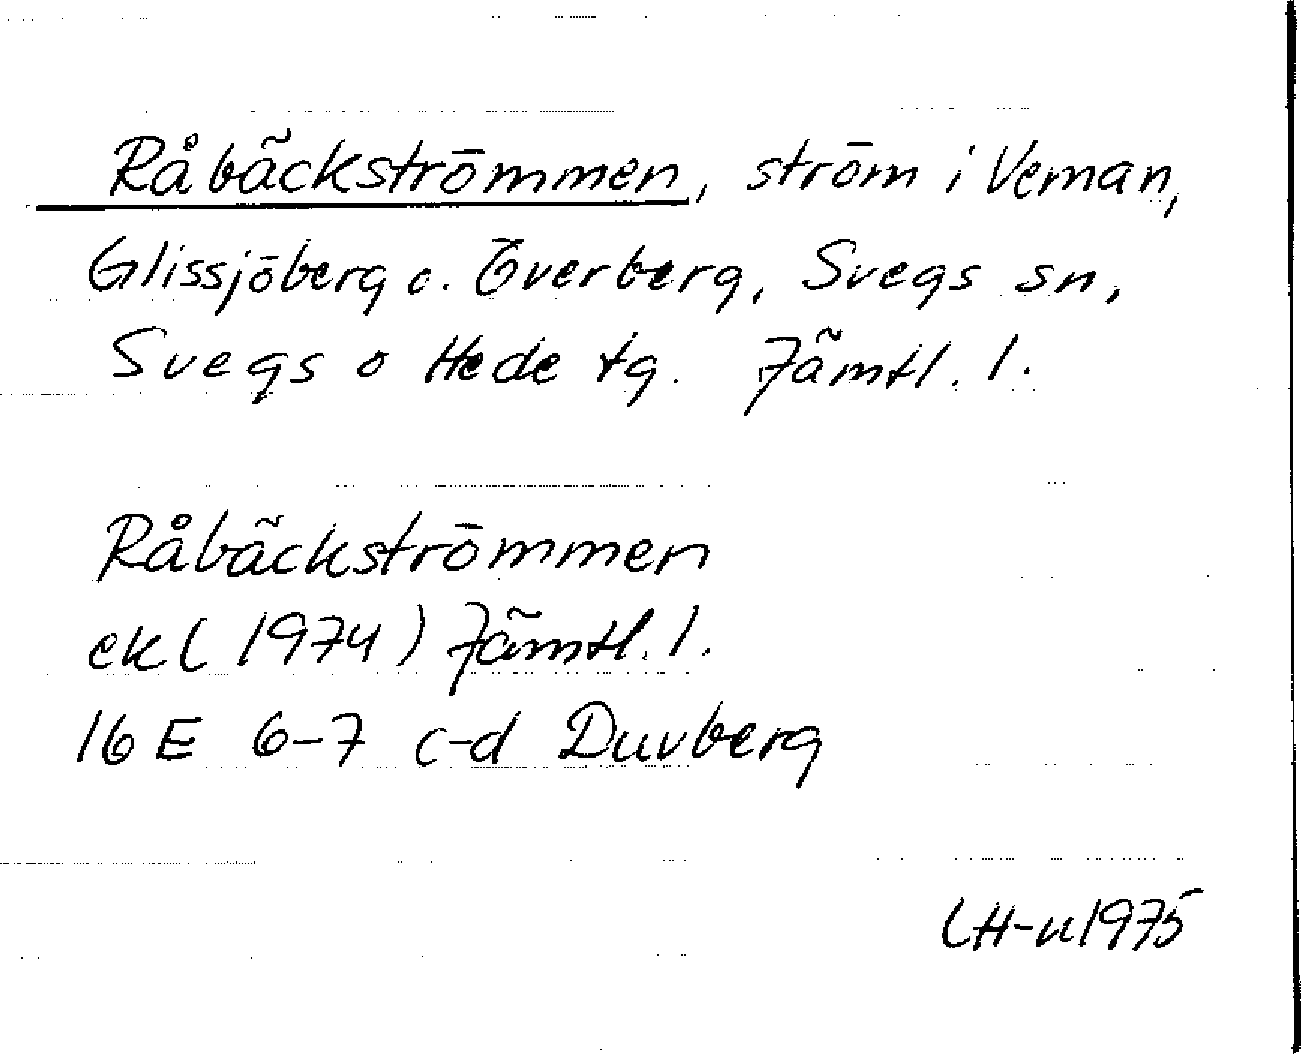 Råbäckströmmen, ström i Veman,
Glissjöberg o. Överberg, Svegs sn,
Svegs o Hede tg. Jämtl. l.
Råbäckströmmen
ekl (1974) Jämtl. l.
16 E 6-7 c-d Duvberg
LH-n 1975